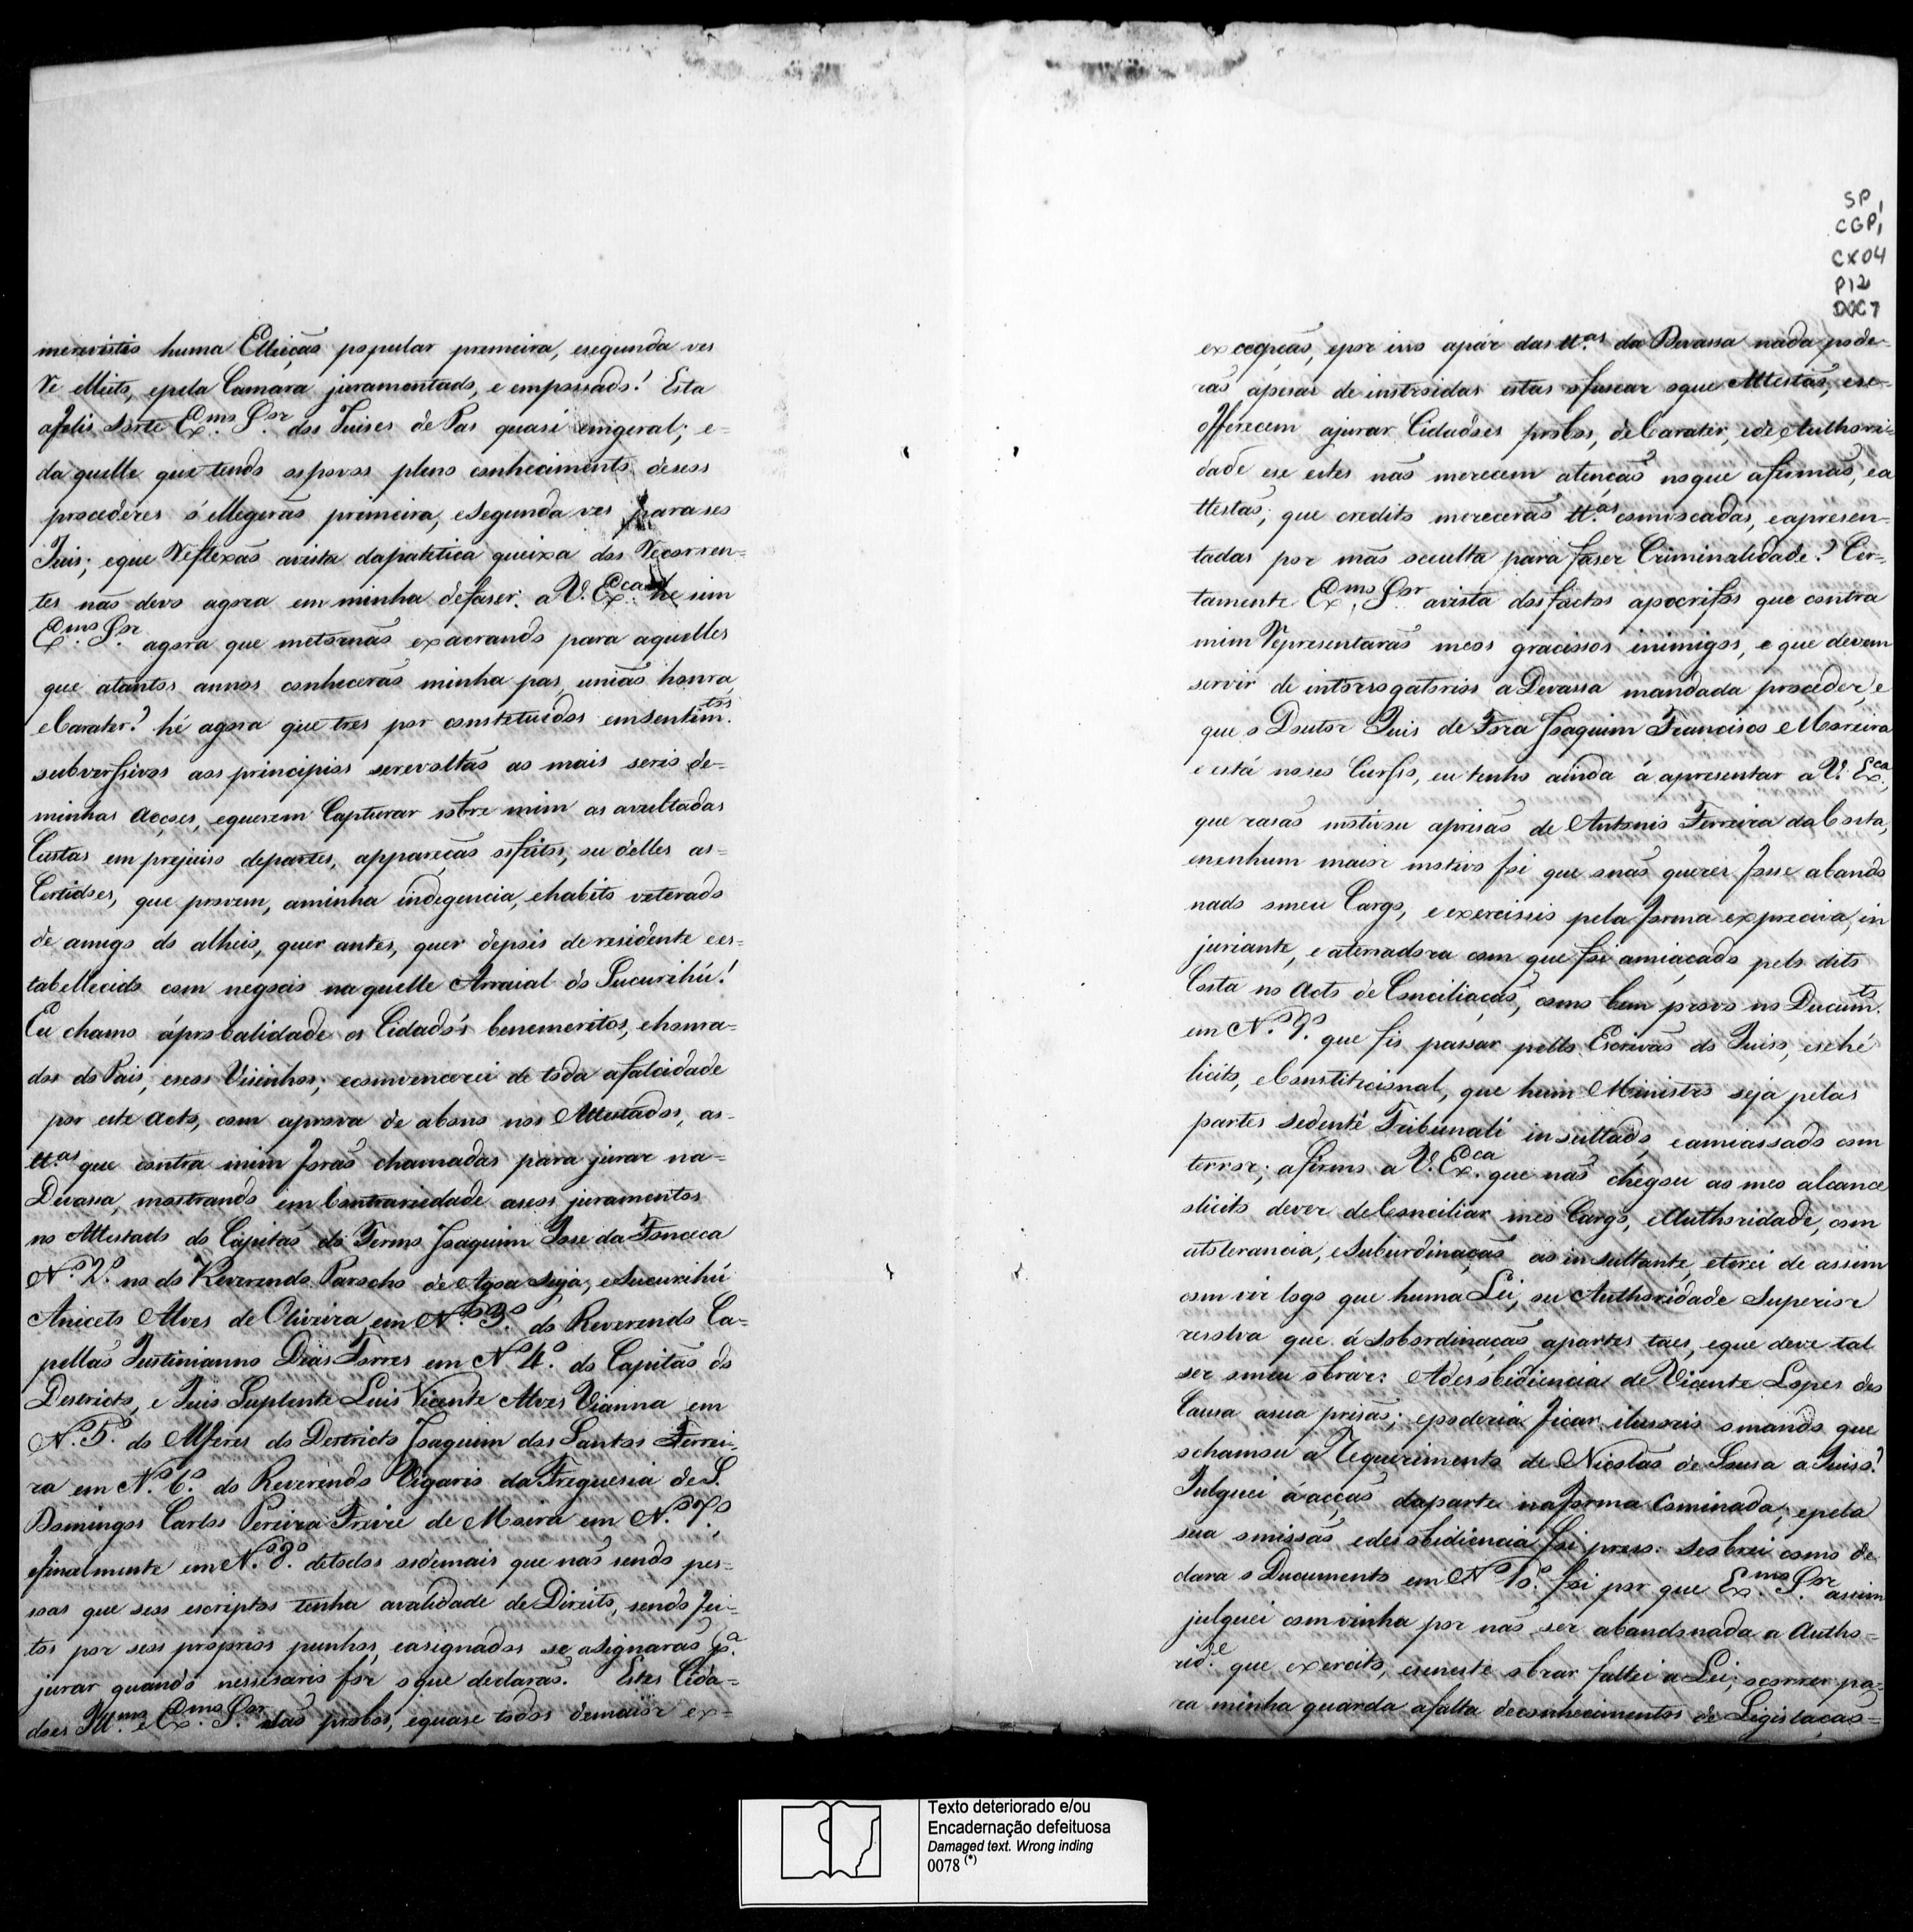 merevistis huma Elleiçaõ popular premeira, esegunda ves
Re elleito, epela Camara juramentado, e empossado! Esta
afelis sorte Ex.mo Snr. dos Juises de Pas quasi emgeral; e=
da quelle que tendo ospovos pleno conhecimento deseos
procedères ó ellegeraõ primeira, eSegunda ves para seo
Juis; eque Reflexaõ avista dapatetica queixa dos Recorren=
tes naõ devo agora em minha defaser. a V. Ex.ca he sim
Ex.mo Snr. agora que metornaõ exacrando para aquelles
que atantos annos conheceraõ minha pas, uniaõ honra,
eCarater? hé agora que tres por constetuidos emsentim.tos
subverssivos aos principios serevoltaõ ao mais serio de=
minhas acçoes, equerem Capturar sobre mim as avultadas
Custas em prejuiso departes, appareçaõ osfeitos, ou delles as=
Certidoes, que provem, aminha indegencia, ehabito veterado
de amigo do alheio, quer antes, quer depois deresidente ees=
tabellecido com negocio naquelle Arraial do Sucurihú!
Eu chamo áprobalidade os Cidadoˢs benemeritos, ehonra=
dos do Pais, eseos Visinhos; econvencerei de toda afalcidade
por este acto, com aprova de abono nos Attestados, as=
tt.as que contra mim foraõ chamadas para jurar na=
Devassa, mostrando em Contrariedade aseos juramentos
no Attestado do Capitaõ do Termo Joaquim Jose da Fonceca
N.º 2.º no do Reverendo Parocho de Agoa Suja, eSucurihú
Aniceto Alves de Oliveira em N.º 3.º do Reverendo Ca=
pellaõ Justinianno Dias Torres em N.º 4.º do Capitaõ do
Destricto, e Juis Suplente Luis Vicente Alves Vianna em
N.º 5.º do Alferes do Destricto Joaquim dos Santos Ferrei=
ra em N.º 6.º do Reverendo Vigario da Freguesia de S.
Domingos Carlos Pereira Freire de Moira em N.º 7.º
efinalmente em N.º 8.º detodos osdemais que naõ sendo pes=
soas que seos escriptos tenha avalidade de Direito, sendo fei=
tos por seos proprios punhos, easignados se asignaraõ p.a
jurar quando nessesario for oque declaraõ. Estes Cida=
does Ill.mo e Ex.mo Snr. saõ probos, equase todos demaiór ex=
SP,
CGP,
CX04
P12
DOC7
excepçaõ, epor isso apár das tt.as da Devassa nada pode=
raõ apesar de instroidas estas ofuscar oque Attestaõ, ese=
offerecem ajurar Cidadoes probos, deCarater, ede Authori=
dade ese estes naõ merecem atençaõ noque afirmaõ, ea
ttestaõ; que credito mereceraõ tt.as comviscadas, eapresen=
tadas por maõ occulta para faser Criminalidade? Cer=
tamente Ex.mo Snr. avista dosfactos apocrifos que contra
mim Representaraõ meos graciosos inimigos, e que devem
servir de intorrogatorios a Devassa mandada proceder, e
que o Doutor Juis de Fora Joaquim Francisco e Moreira
e está noseo Curso, eu tenho ainda á apresentar a V. Ex.ca,
que rasaõ motivou aprisaõ de Antonio Ferreira daCosta,
enenhum maior motivo foi que onaõ querer fosse abando
nado omeu Cargo, e exercissio pela forma expreciva, in
juriante, e aterradora com que foi amiaçado pelo dito
Costa no Acto de Conciliaçaõ, como bem provo no Docum.to
em N.º 9.º que fis passar pello Escrivaõ do Juiso, esehé
licito, eConstitucional, que hum Ministro seja pelas
partes sedente Tribunali insultado, eamiassado com
terror; afirmo a V. Ex.ca que naõ chegou ao meo alcance
olicito dever deConciliar meo Cargo, eAuthoridade, com
atolerancia, eSuburdinaçaõ ao insultante, eterei de assim
com vir logo que huma Lei, ou Authoridade Superior
resolva que á Sobordinaçaõ apartes taes, eque deve tal
ser omeu obrar: Adesobidiencia de Vicente Lopes deo
Causa asua prisaõ; epoderia ficar ilusorio omando que
ochamou a Requerimento de Nicolaõ de Sousa a Juiso?
Julguei á acçaõ daparte naforma Cominada; epela
sua omissaõ edesobidiencia foi preso: Seobrei como de
clara o Documento em N.º 10.º foi por que Ex.mo Snr. assim
julguei com vinha por naõ ser abandonada a Autho=
rid.e que exercito, eseneste obrar faltei a Lei, ocorrer pa=
ra minha guarda afalta deconhecimentos de Legislaçaõ=
Texto deteriorado e/ou
Encadernação defeituosa
Damaged text. Wrong inding
0078 (*)